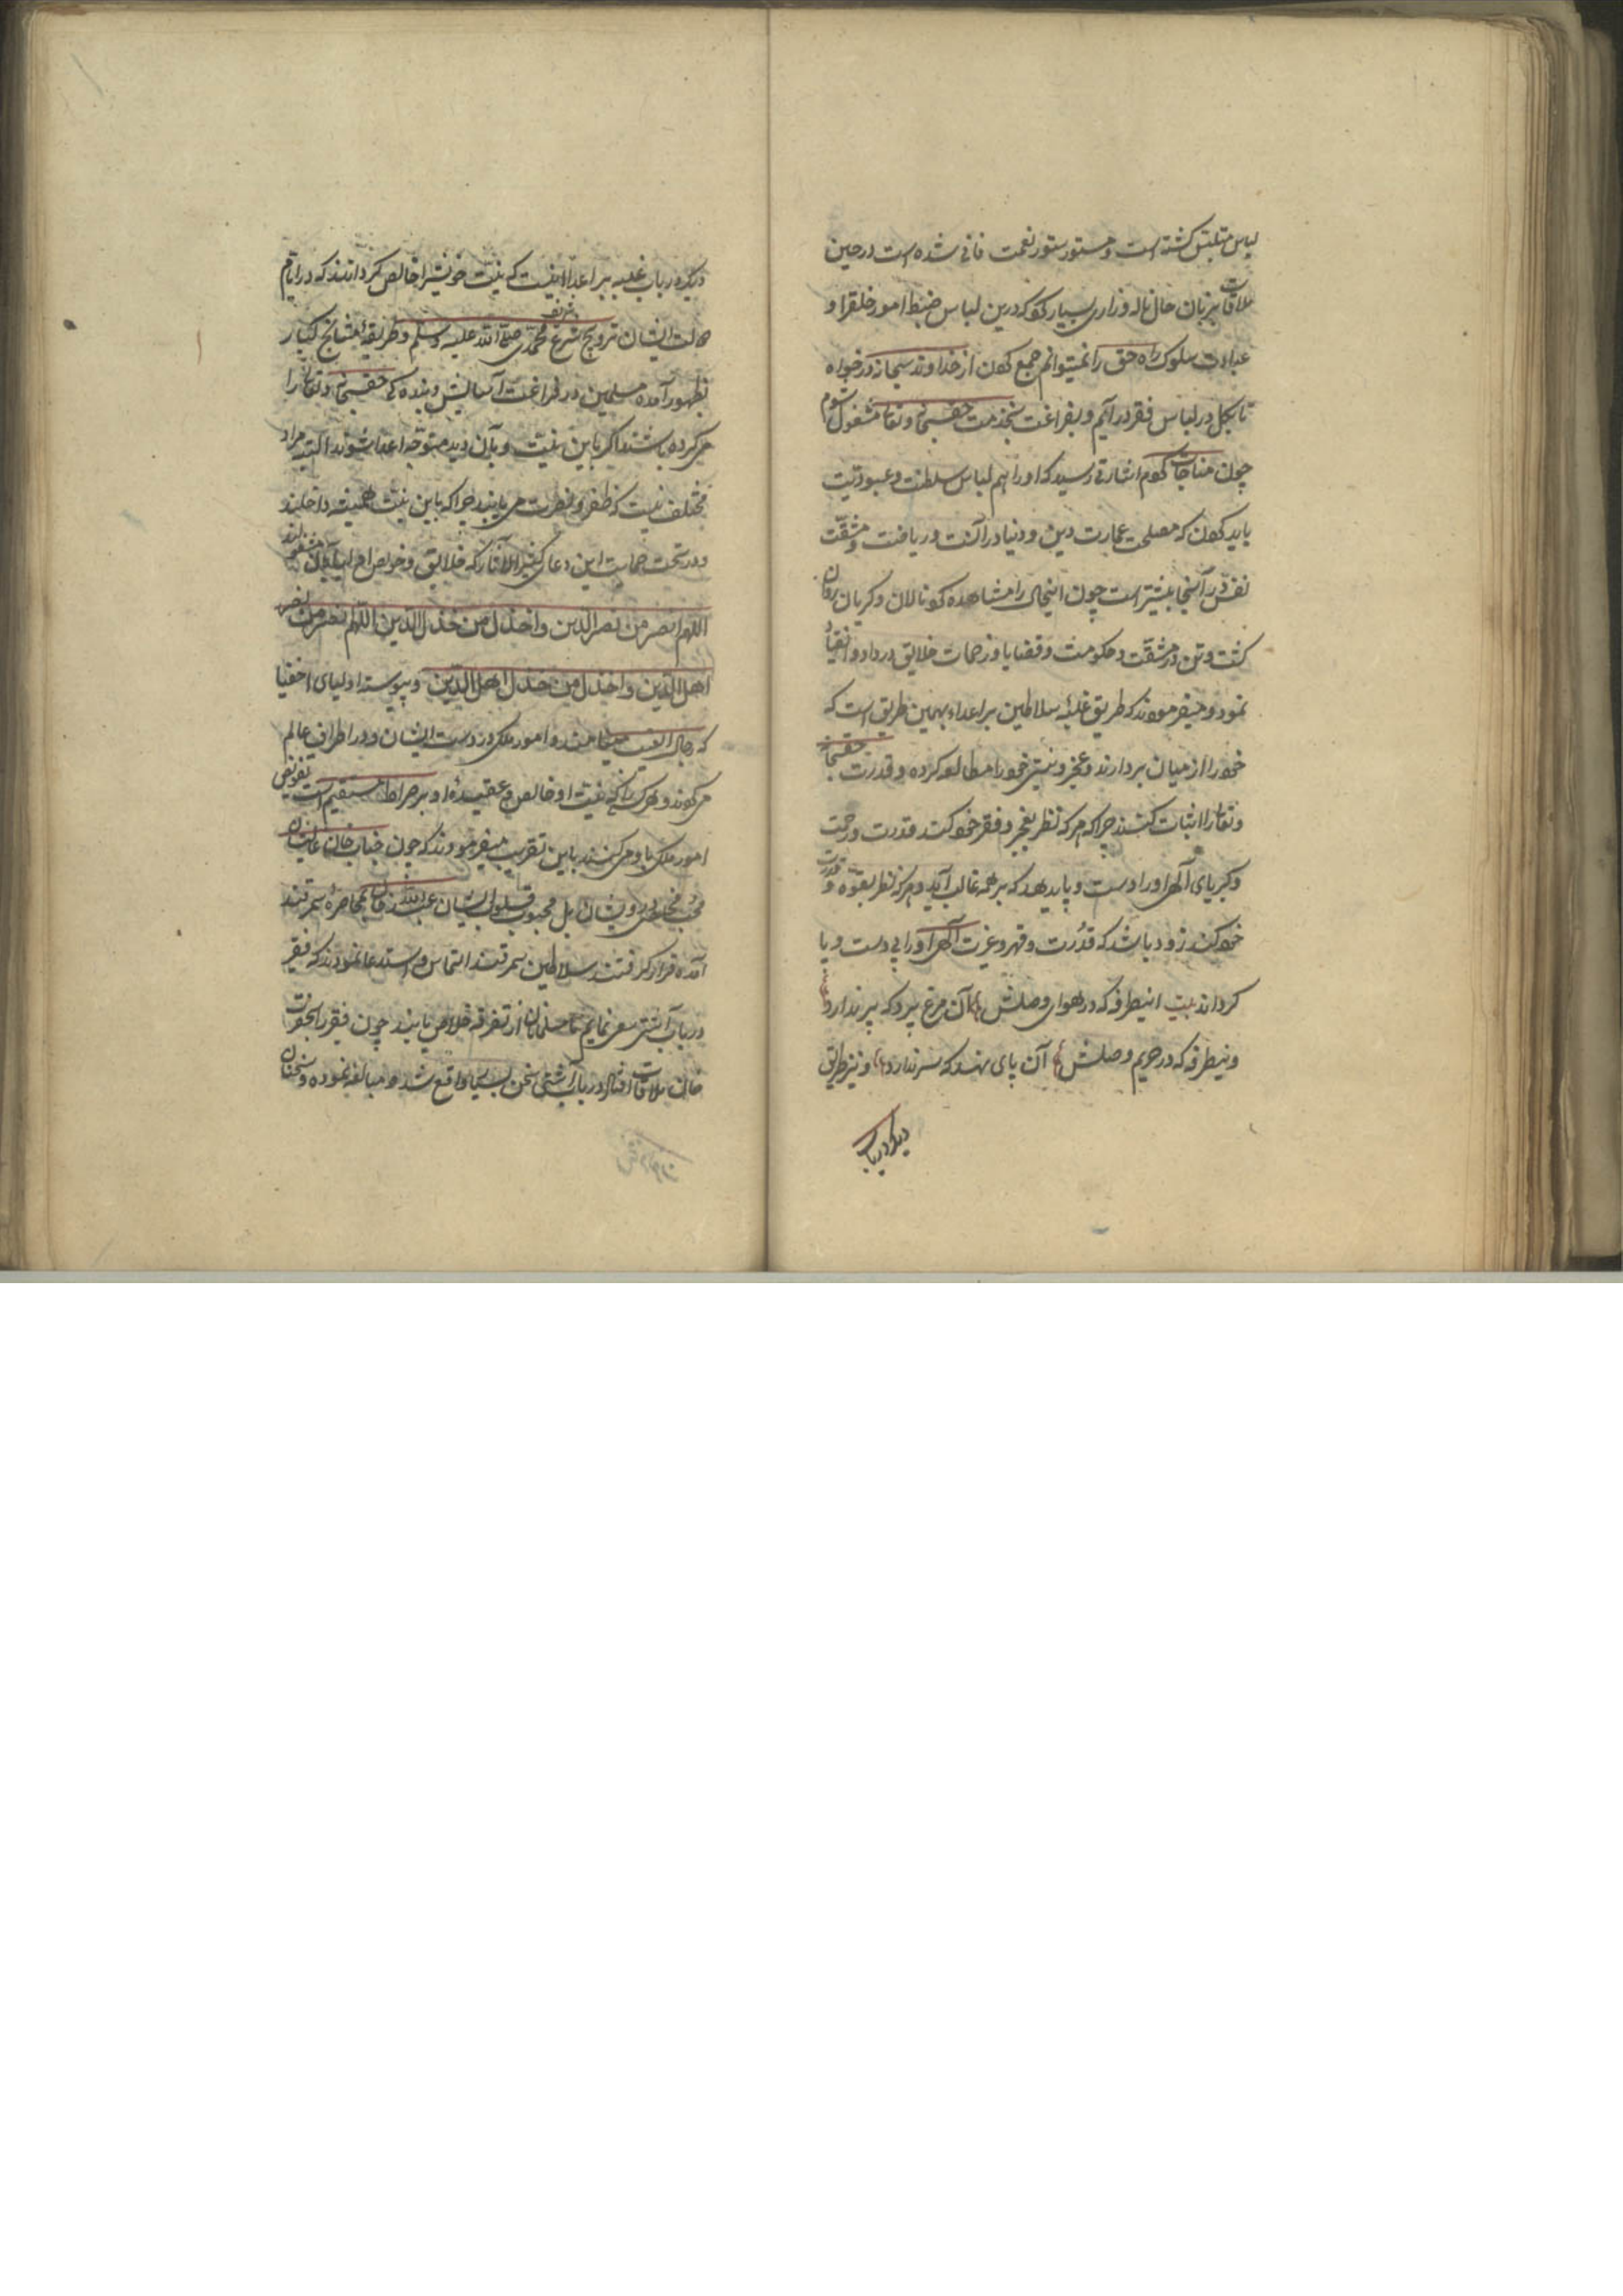 لباس متلبس کشته است و مستور ستور نعمت فانی شده است در حین
ملاقات بزبان حال ناله و زاری بسیار کرد که درین لباس ضبط امور خلق را و
عبادت سلوک راه حق را نمیتوانم جمع کردن از خداوند سبحانه درخواه
تا بکل در لباس فقر در آیم و بفراغت بخدمت حق سبحانه و تعالی مشغول شوم
چون مناجات کردم اشارتی رسید که او را هم لباس سلطنت و عبودیت
باید کردن که مصلحت عمارت دین و دنیا در آنست و ریاضت و مشقت
نفس در آنجا بیشتر است چون اینحال را مشاهده کرد نالان و کریان روان
کشت و تن در مشقت و حکومت و قضایا و زحمات خلایق در داد و انقیاد
نمود و میفرمودند که طریق غلبه سلاطین بر اعداء بهمین طریق است که
خود را از میان بردارند و عجز و نیستی خود را مطالعه کرده و قدرت حق سبحانه
و تعالی را اثبات کنند چرا که هر که نظر بعجز و فقر خود کند قدرت و رحمت
و کبریای آلهی او را دست و پا بدهد که بر همه غالب آید و هر که نظر بقوة و قدرت
خود کند زود باشد که قدرت و قهر و عزت آلهی او را بی دست و پا
کرداند بیت اینطرفه که در هوای وصلش آن مرغ پرد که پر ندارد
وینطرفه که در حریم وصلش آن پای نهد که سر ندارد و نیز طریق
دیکر در باب
دیکر در باب غلبه بر اعداء اینست که نیت خویش را خالص کردانند که در ایام
دولت ایشان ترویج شرع شریف محمدی صلی الله علیه وسلم و طریقه مشایخ کبار
بظهور آمده مسلمین در فراغت آسایش و بنده کی حق سبحانه و تعالی را
می کرده باشند اکر باین نیت و بآن دید متوجه اعدا شوند البته مراد
مختلف نیست که ظفر و نصرت می یابند چرا که باین نیت همیشه داخلند
و در تحت حمایت این دعای کثیر الآثار که خلایق و خواص
اللهم انصر من نصر الدین واخذل من خذل الدین اللهم انصر من نصر
اهل الدین واخذل من خذل اهل الدین و پیوسته اولیای اخفیا
که رجال الغیب میباشند و امور ملکی در دست ایشان و در اطراف عالم
می کردند و هر کسی را که نیت او خالص و عقیده او بر صراط مستقیم است تفویض
امور ملکی باو می کنند باین تقریب میفرمودند که چون جناب خان عالیشان
محب مخلص درویشان بل محبوب قلوب ایشان عبدالله خان بمحاصره سمرقند
آمده قرار کرفتند سلاطین سمرقند التماس و استدعا نمودند که فقیر
در باب آشتی سعی نمایم تا مسلمانان از تفرقه خلاص یابند چون فقیر را بحضرت
خان ملاقات افتاد در باب آشتی سخن بسیار واقع شد و مبالغه نموده و سخنان